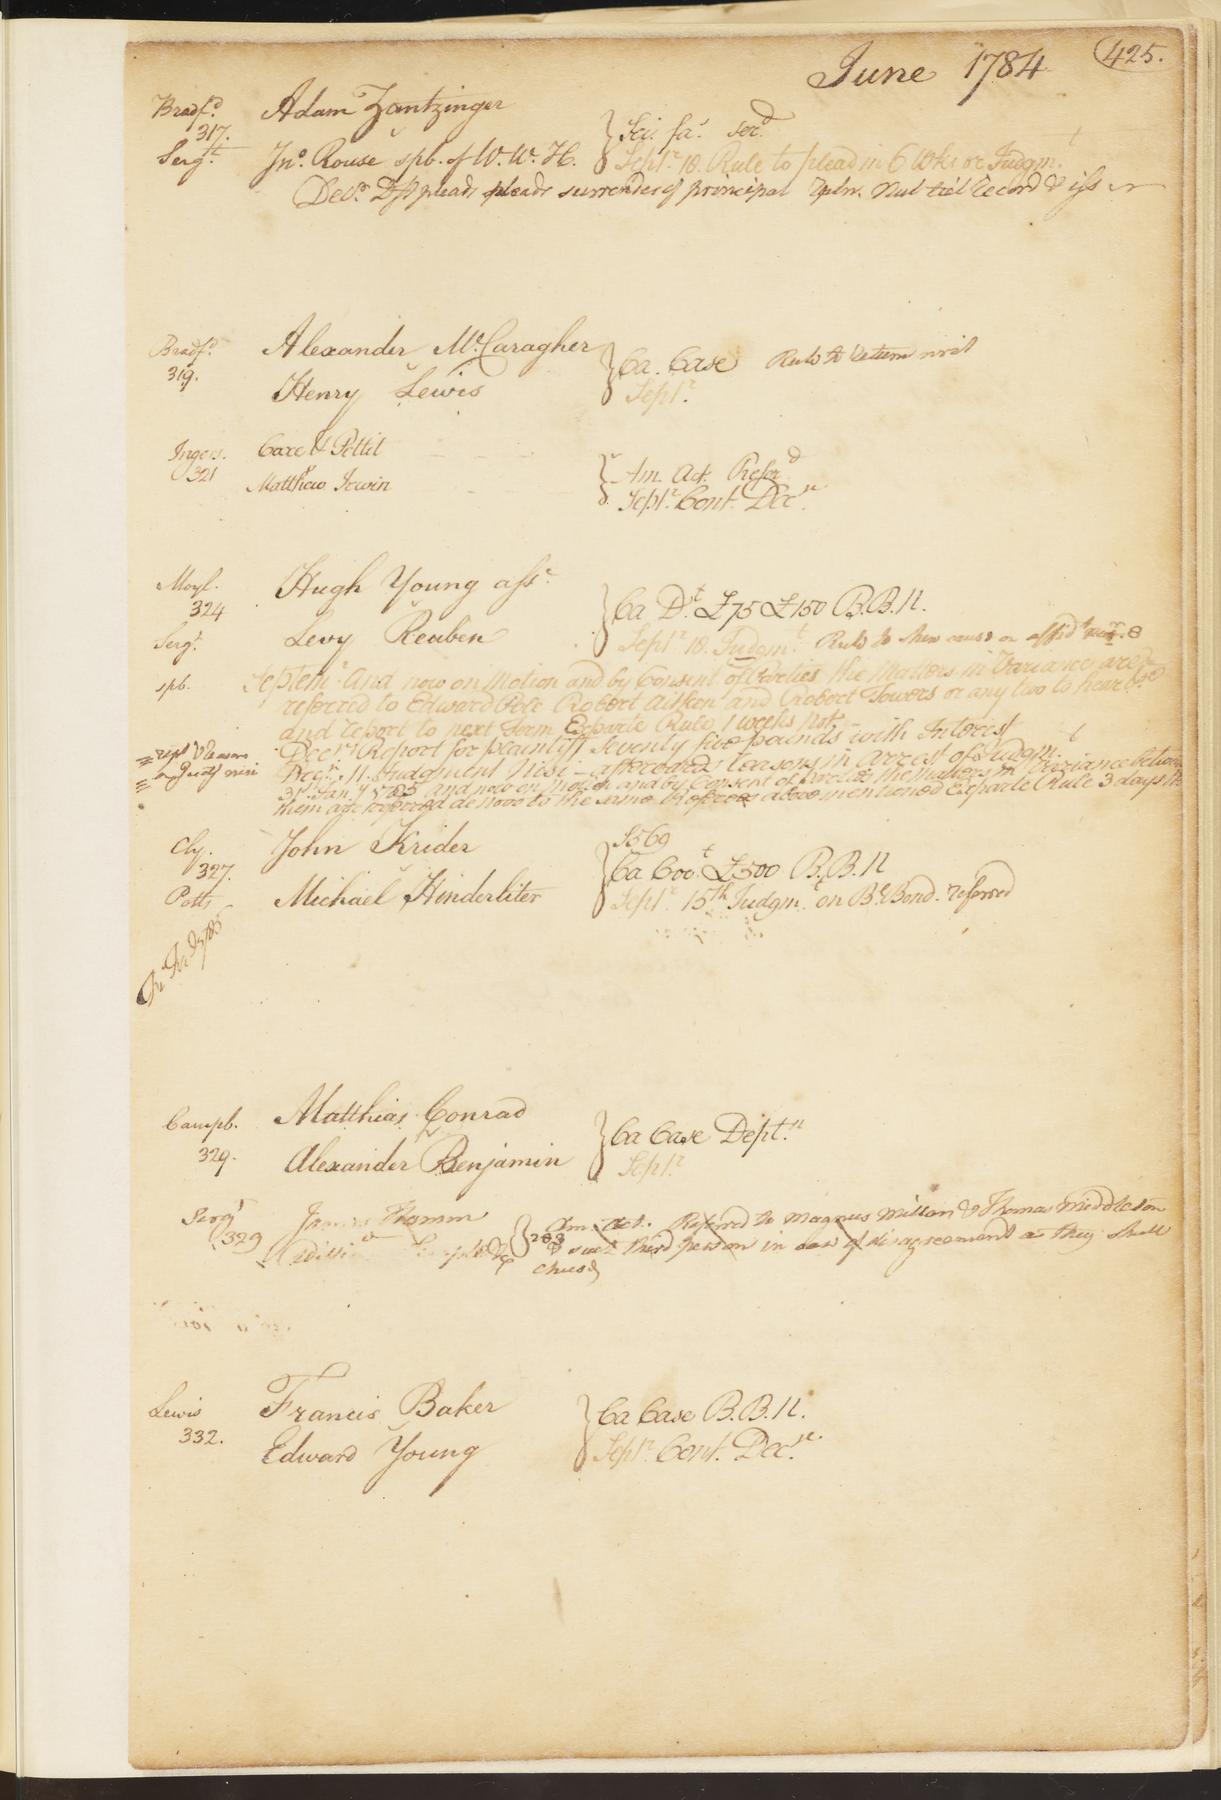 June 1784
425.
Bradf.d
317.
Serg.t
Adam Zantzinger
Jn.o Rouse spb. of W. W. H.
Sci. fa.s ser.d
Sept.r 18. Rule to plead in 6 Wks or Judgm.t
Dec.r Dft pleads surrender of principal repln. Nul tiel record & iss
Bradf.d
319.
Alexander Mc.Caragher
Henry Lewis
Ca. Case Rule to return writ
Sept.r
Ingers.
321
Coxe & Pettit
Matthew Irwin
Am. Act. Refer.d
Sept.r Cont. Dec.r
Moyl.
324
Serg.t
spb.
Hugh Young ass.e
Levy Reuben
Ca D.t £75 £150 B.B.N.
Sept.r 18. Judgm.t Rule to shew cause on affid.t
Septem.r And now on Motion and by Consent of Parties the Matters in Variance are
referred to Edward Pole Robert Aitken and Robert Towers or any two to hear &c
and report to next Term Exparte Rule 1 weeks not.
Dec.r Report for plaintiff Seventy five pounds with Interest
Dec.r 11. Judgment Nisi – afterwards reasons in arrest of Judgm.t
31.st Jan.y 1785 and now on Motion and by Consent of Parties the Matters in Variance between
them are referred de novo to the same Referees above mentioned Exparte Rule 3 days
Cly.
327.
Potts
John Krider
Michael Hinderliter
£569
Ca Cov.t £500 B.B.N
Sept.r 15.th Judgm.t on B.l Bond. referred
Campb.
329.
Matthias Conrad
Alexander Benjamin
Ca Case Dept.n
Sept.r
Serg.t
329
James
Am. Act. Referred to Magnus Miller & Thomas Middleton
& such third person in case of disagreement as they shall
chuse
Lewis
332.
Francis Baker
Edward Young
Ca Case B.B.N.
Sept.r Cont. Dec.r